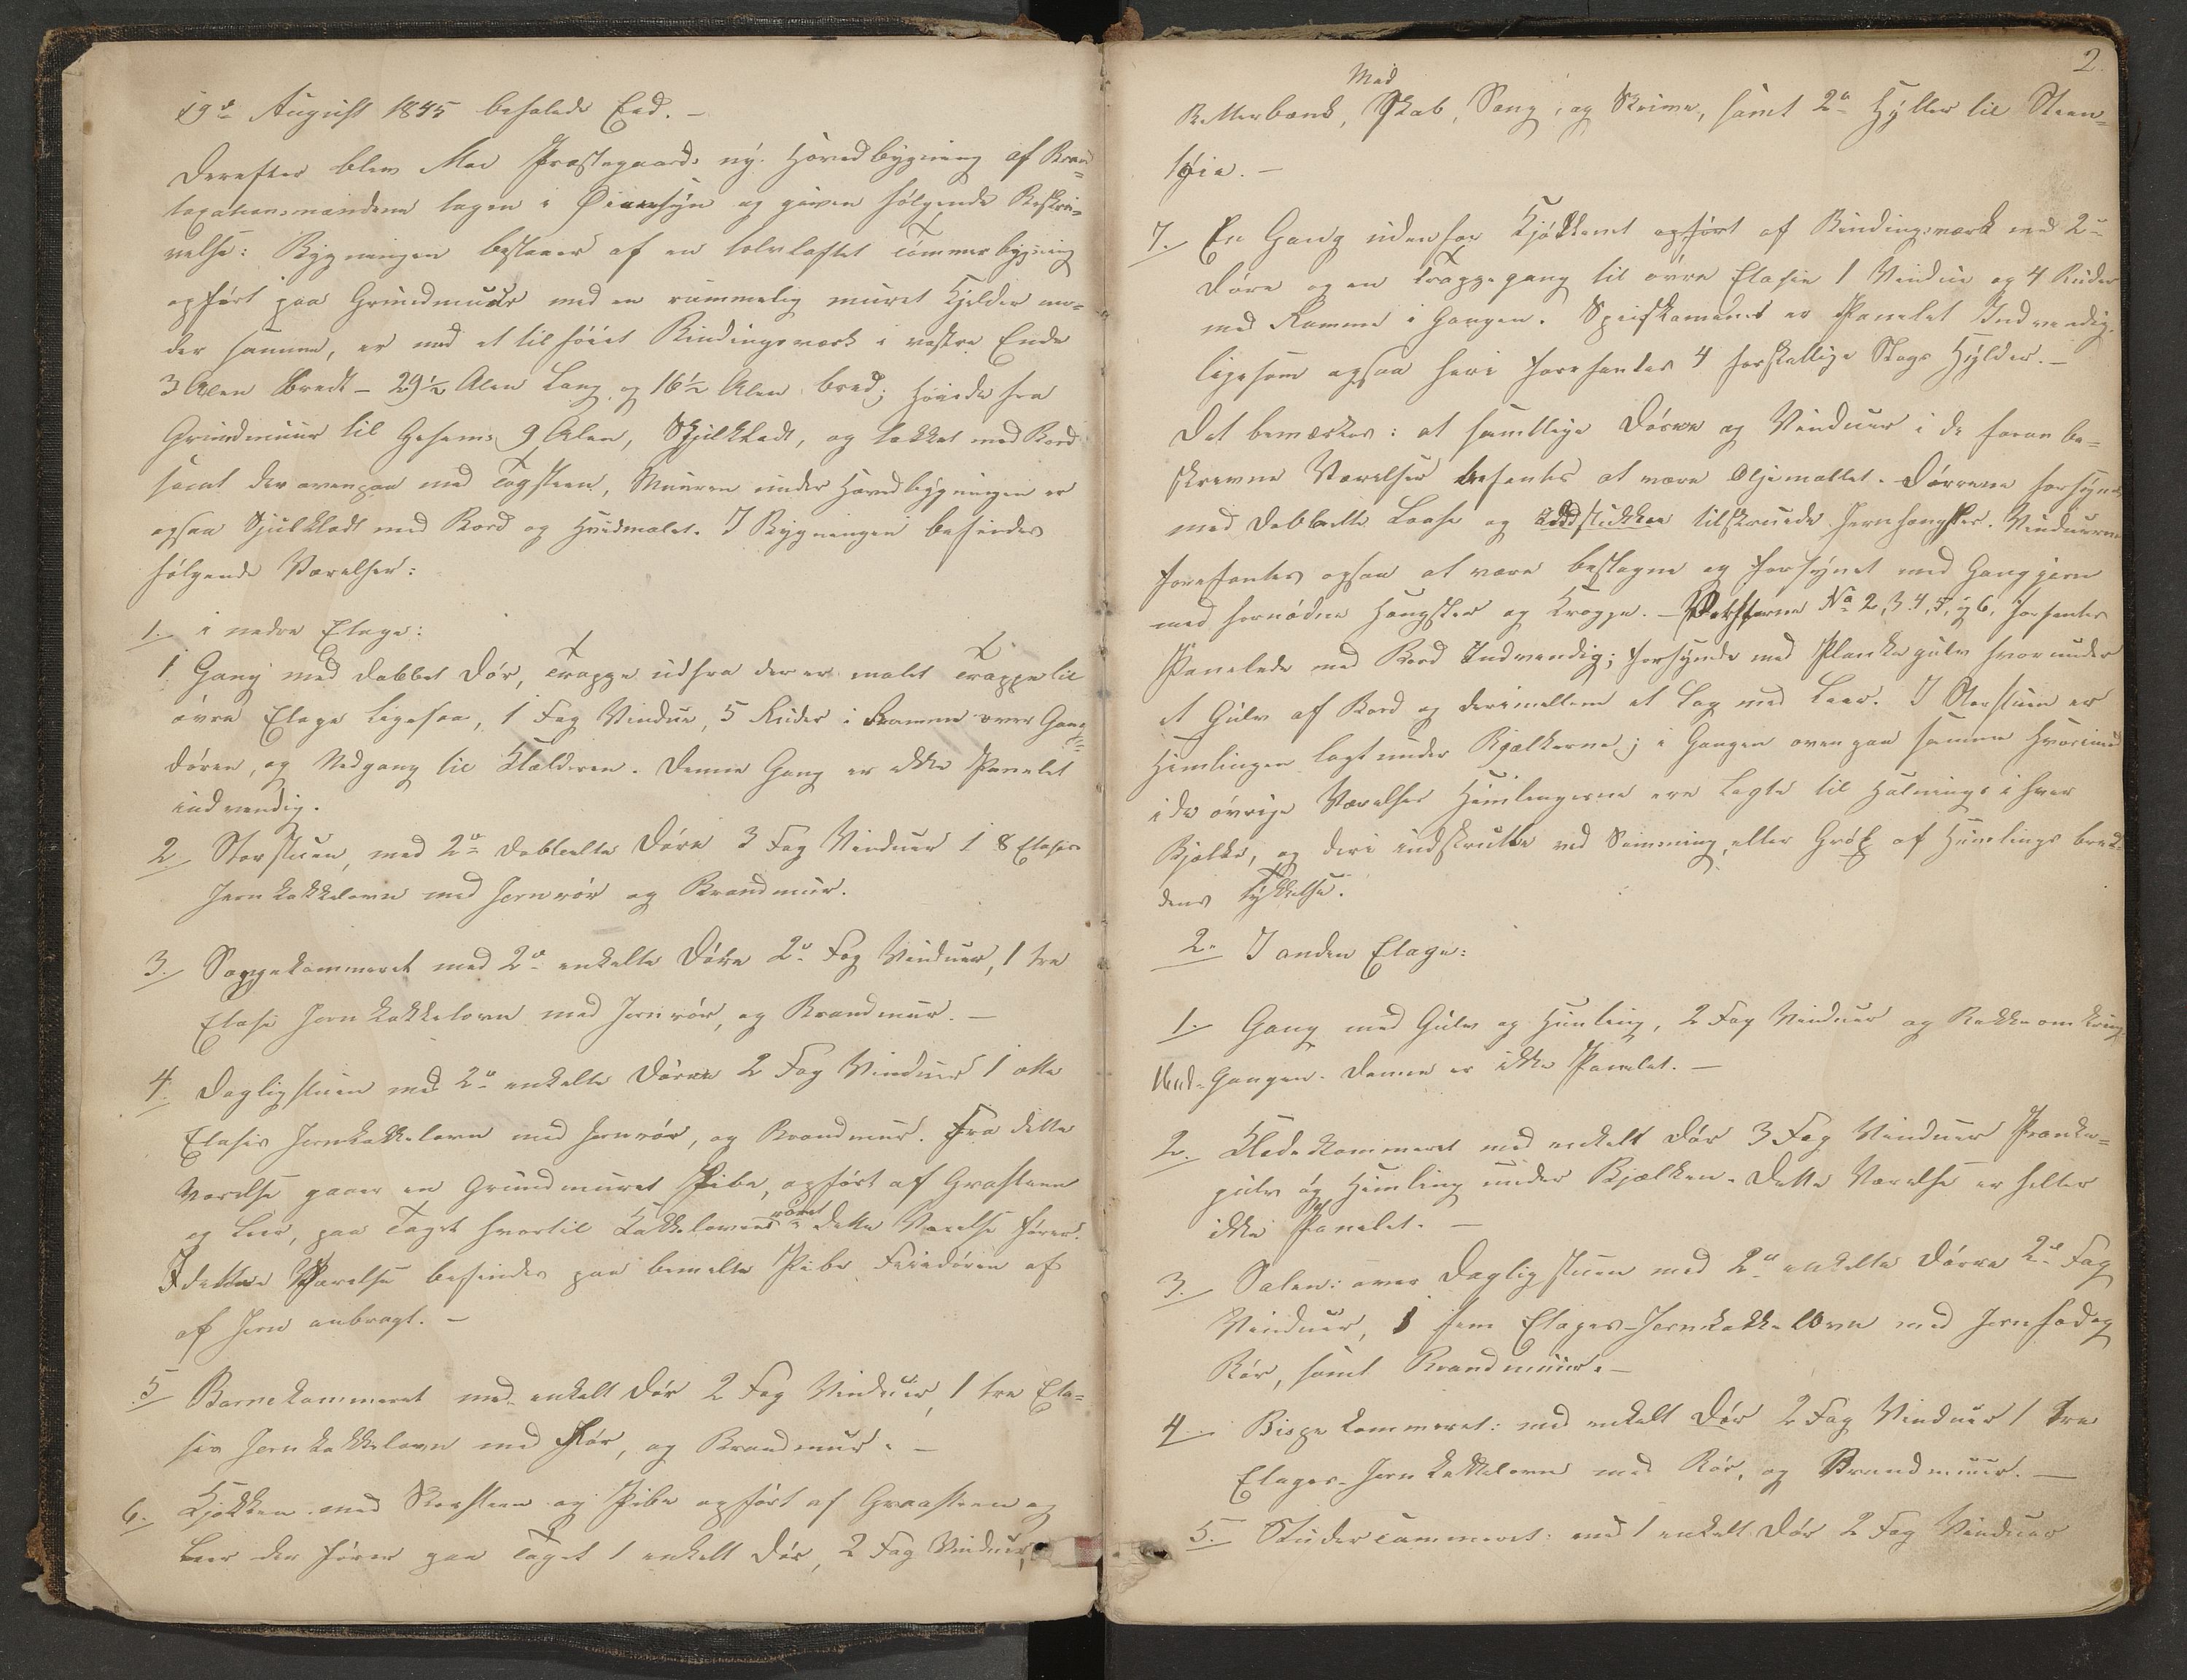 19de August 1845 befalede Eed. -
Derefter blev Moe Præstegaards ny Hovedbygning af Brand=
taxationsmændene tagen i Øiensyn og given følgende Beskri=
velse: Bygningen bestaaer af en tolvloftet Tømmerbygning
opført paa Grundmuur med en rummelig muret Kjelder un=
der samme, er med et tilføiet Bindingsværk i vestre Ende
3 Alen bredt - 29½ Alen Lang og 16½ Alen bred; Høiede fra
Grundmuur til Gesims 9 Alen, Skjulklædt, og takket med Bord
samt der ovenpaa med Tagsteen, Muuren under Hovedbygningen er
ogsaa Skjulklædt med Bord og Hvidmalet. I Bygningen befindes
følgende Værelser:
1. i nedre Etage:
1 Gang med dobbet Dør, Trappe udfra der er malet Trappe til
øvre Etage ligesaa, 1 Fag Vindue, 5 Ruder i Ramme over Gang=
døren, og Nedgang til Kjælderen. Denne Gang er ikke Panelet
indvendig.
2 Storstuen, med 2de dobbelte Døre 3 Fag Vinduer 1 8 Etasies
Jernkakkelovn med Jernrør og Brandmur.
3. Soggekammeret med 2de enkelte Døre 2de Fag Vinduer, 1 tre
Etasi Jernkakkelovn med Jernrør, og Brandmur. -
4. Dagligstuen med 2de enkelte Døre 2 Fag Vinduer 1 otte
Etasies Jernkakkelovn med Jernrør, og Brandmur. Fra dette
Værelse gaaer en Grundmuret Pibe, opført af Graasteen
og Leer, paa Taget hvortil Kakkelovnsrøret i dette Værelse fører.
I dette Værelse befindes paa bemelte Pibe Feiedøren af
af Jern anbragt. -
5 Barnekammeret med enkelt Dør 2 Fag Vinduer, 1 tre Eta=
sies Jernkakkelovn med Rør, og Brandmur. -
6. Kjøkken med Skorsteen og Pibe opført af Graasteen og
Leer der fører paa Taget 1 enkelt Dør, 2 Fag Vinduer,
2.
Retterbænk, Mad Skab, Seng, og Skrime, samt 2de Hyller til Steen=
tøie. -
7. En Gang udenfor Kjøkkenet opført af Bindingsværk med 2de
Døre og en Trappegang til øvre Etasie 1 Vindue og 4 Ruder
med Ramme i Gangen. Speiskameret er Panelet Indvendig
ligesom ogsaa heri forefantes 4 forskjellige Slags Hylder. -
Det bemærkes: at samtlige Dørene og Vinduer i de foran be=
skrevne Værelser befantes at være Oljemallet. Dørrene forsynet
med dobbelte Laase og tilskruede Jernhængsler. Vinduerne
forefantes ogsaa at være beslagne og forsynet med Gangjern
med fornødne Hængsler og Kroppe. - No 2, 3. 4, 5, og 6. forfantes
Panelede med Bord Indvendig; forsynede med Plankegulv hvorunder
et Gulv af Bord og derimellem et Lag med Leer. I Storstuen er
Himlingen lagt under Bjælkerne; i Gangen ovenpaa samme hvorimod
i de øvrige Værelser Himlingerne ere lagte til Halvings i hver
Bjælke, og deri indskrudte ved Simming, eller Grøb af Himlings bræd=
dens Tykkelse.
2. I anden Etage:
1. Gang med Gulv og Himling, 2 Fag Vinduer og Rekke omkring
Gangen. Denne er ikke Panelet. -
2. Klædekammeret med enkelt Dør 3 Fag Vinduer Planke=
gulv og Himling under Bjælken. Dette Værelse er heller
ikke Panelet. -
3. Salen: over Dagligstuen med 2de enkelte Dørre 2de Fag
Vinduer, 1 fem Etages Jernkakkelovn med Jernfod og
Rør, samt Brandmuur. -
4. Bispekammeret: med enkelt Dør 2 Fag Vinduer 1 tre
Etages Jernkakkelovn med Rør, og Brandmuur. -
5. Studercammeret: med 1 enkelt Dør 2 Fag Vinduer